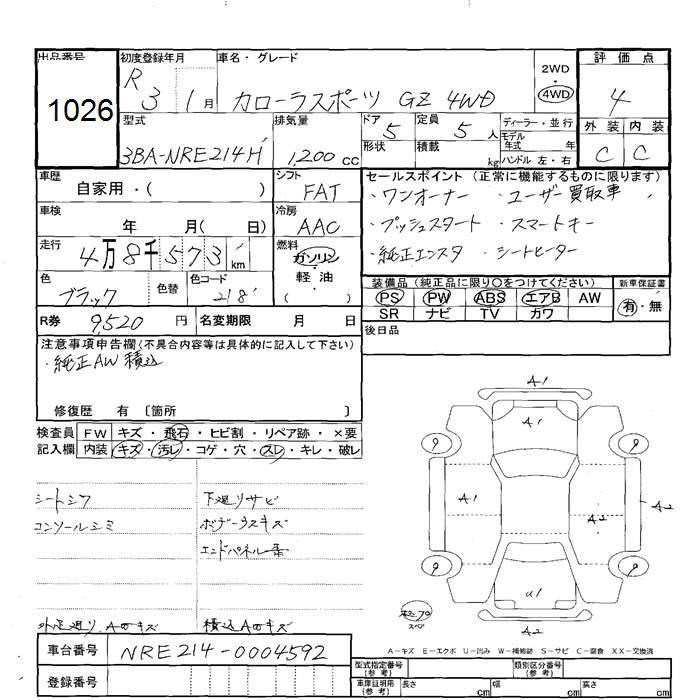 出品番号
1026
初度登録年月
R 3 1月
車名・グレード
カローラスポーツ GZ 4WD
2WD
4WD
評価点
4
外装 内装
C C
型式
3BA-NRE214H
排気量
1,200 cc
ドア 5
定員 5 人
形状
積載 kg
ディーラー・並行
モデル年式 年
ハンドル 左・右
車歴
自家用・( )
シフト
FAT
車検
年 月( 日)
冷房
AAC
走行
4万8千573 km
燃料
ガソリン
軽油
( )
色
ブラック
色替
色コード
218
R券 9,520 円
名変期限 月 日
セールスポイント (正常に機能するものに限ります)
・ワンオーナー ・ユーザー買取車
・プッシュスタート ・スマートキー
・純正エンスタ ・シートヒーター
装備品(純正品に限り○をつけてください)
新車保証書
PS PW ABS エアB AW
SR ナビ TV カワ
有・無
後日品
注意事項申告欄(不具合内容等は具体的に記入して下さい)
・純正AW積込
修復歴 有 〔箇所 〕
検査員記入欄
FW キズ・飛石・ヒビ割・リペア跡・×要
内装 キズ・汚レ・コゲ・穴・スレ・キレ・破レ
シートシワ
コンソールシミ
下廻りサビ
ボデーウスキズ
エンドパネル一条
外廻り、Aのキズ
積込AWキズ
A1
A1
9 9
A1 A2 A2
9 9
U1
A2
スペア
A-キズ E-エクボ U-凹み W-補修跡 S-サビ C-腐食 XX-交換済
車台番号
NRE214-0004592
登録番号
型式指定番号(参考)
類別区分番号(参考)
車庫証明用(参考)
長さ cm
幅 cm
高さ cm